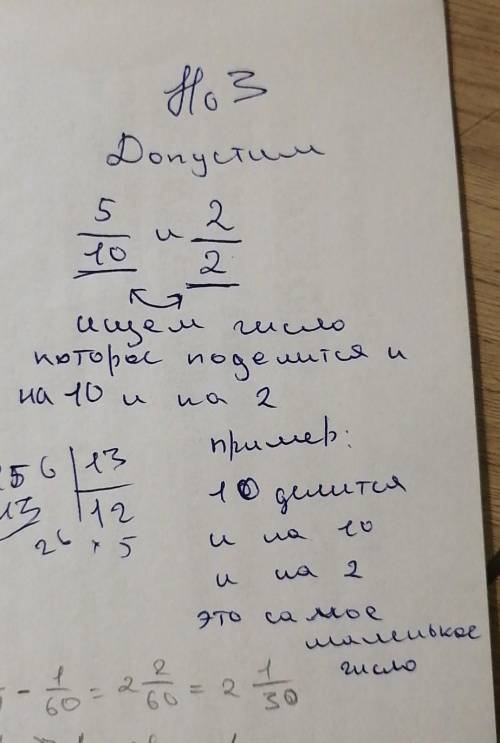 НоЗ
Допустим
5/10 и 2/2
ищем число
которое поделится и
на 10 и на 2
пример:
10 делится
и на 10
и на 2
это самое
маленькое
число
156 | 13
13 | 12
26 × 5
- 1/60 = 2 2/60 = 2 1/30